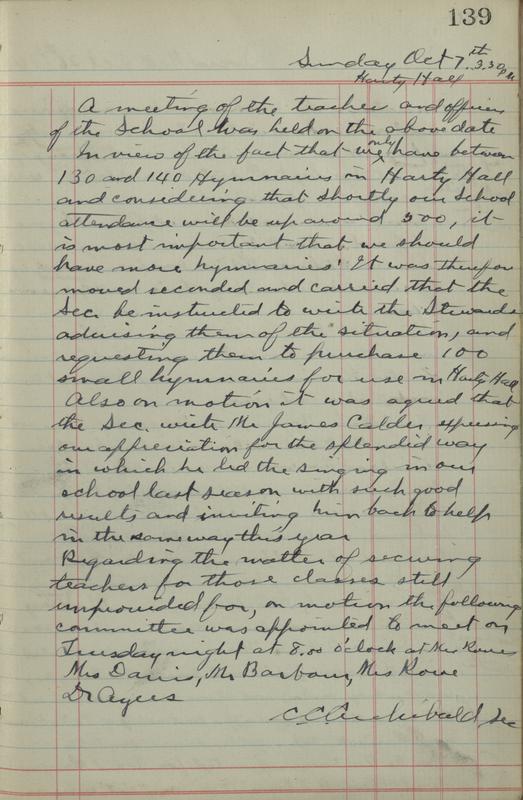 139
Sunday Oct 7th 3.30 p.m.
Harty Hall
A meeting of the teacher and officers
of the School was held on the above date
In view of the fact that we only have between
130 and 140 Hymnaries in Harty Hall
and considering that shortly our School
attendance will be up around 300, it
is most important that we should
have more hymnaries. It was therefor
moved seconded and carried that the
Sec. be instructed to write the Stewards
advising them of the situation, and
requesting them to purchase 100
small hymnaries for use in Harty Hall
Also on motion it was agreed that
the Sec. write Mr James Calder expressing
our appreciation for the splendid way
in which he led the singing in our
school last season with such good
results and inviting him back to help
in the same way this year
Regarding the matter of securing
teachers for those classes still
unprovided for, on motion the following
committee was appointed to meet on
Tuesday night at 8.00 o'clock at Mrs Rowes
Mrs Davis, Mr Barbour, Mrs Rowe
Dr Ayers
C C Archibald Sec